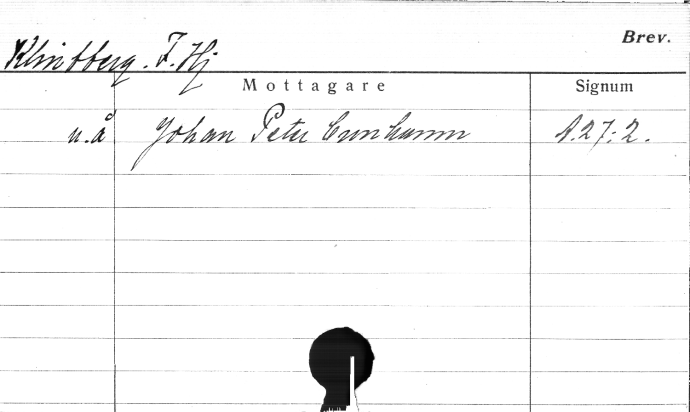 Brev.
Klintberg. F. Hj
Mottagare Signum
u.å Johan Peter Cronhamn S.27:2.